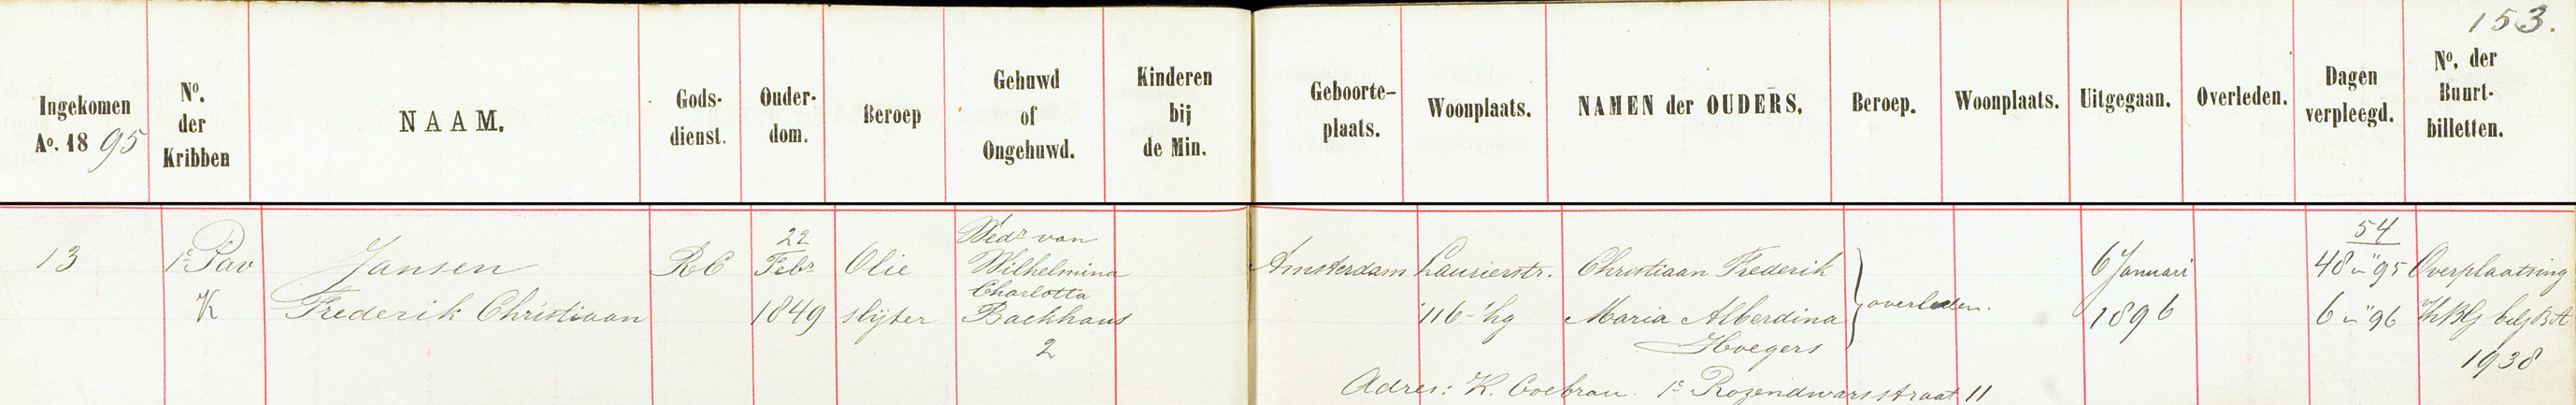 153.
Ingekomen
Ao. 18 95
No.
der
Kribben
NAAM.
Gods-
dienst.
Ouder-
dom.
Beroep
Gehuwd
of
Ongehuwd.
Kinderen
bij
de Min.
Geboorte-
plaats.
Woonplaats.
NAMEN der OUDERS.
Beroep.
Woonplaats.
Uitgegaan.
Overleden.
Dagen
verpleegd.
No. der
Buurt-
billetten.
13
1e Pav
K
Jansen
Frederik Christiaan
RC
22
Febr
1849
Olie
slijter
Wedr van
Wilhelmina
Charlotta
Backhaus
2
Amsterdam
Laurierstr.
116 - hg
Christiaan Frederik
Maria Alberdina
Hoegers
overleden.
6 Januari
1896
54
48 in "95
6 in "96
Overplaatsing
1938
Adres: K. 1e Rozendwarsstraat 11